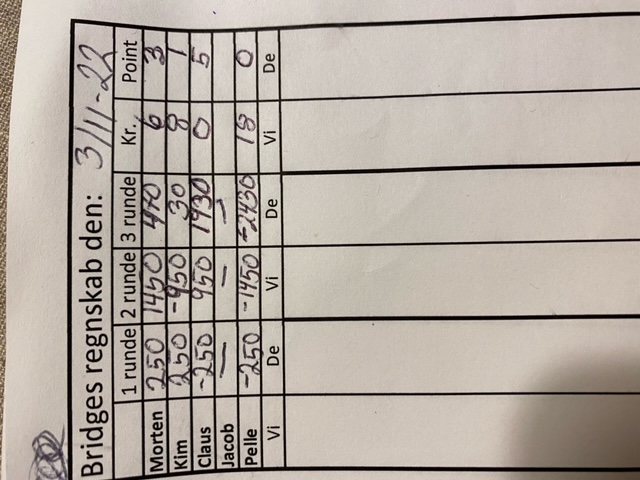 Bridges regnskab den: 3/11-22
1 runde 2 runde 3 runde Kr. Point
Morten 250 1450 470 6 3
Kim 250 -950 30 8 1
Claus -250 950 1930 0 5
Jacob — — —
Pelle -250 -1450 -2430 18 0
Vi De Vi De Vi De